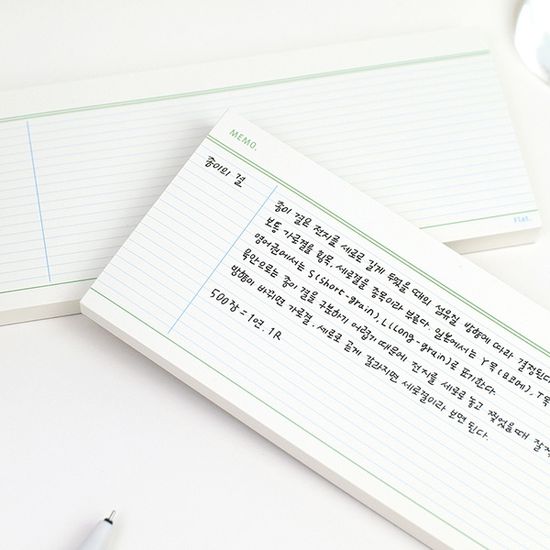 MEMO.
종이의 결
종이 결은 전지를 세로로 길게 두었을 때의 섬유질 방향에 따라 결정된다
보통 가로결을 횡목, 세로결을 종목이라 부른다. 일본에서는 Y목(요코메), T목
영어권에서는 S(Short-grain), L(Long-grain)로 표기한다.
육안으로는 종이 결을 구분하기 어렵기 때문에 전지를 세로로 놓고 찢었을때 잘
방향이 바뀌면 가로결, 세로로 곧게 갈라지면 세로결이라 보면 된다.
500장 = 1연. 1R
Flat.